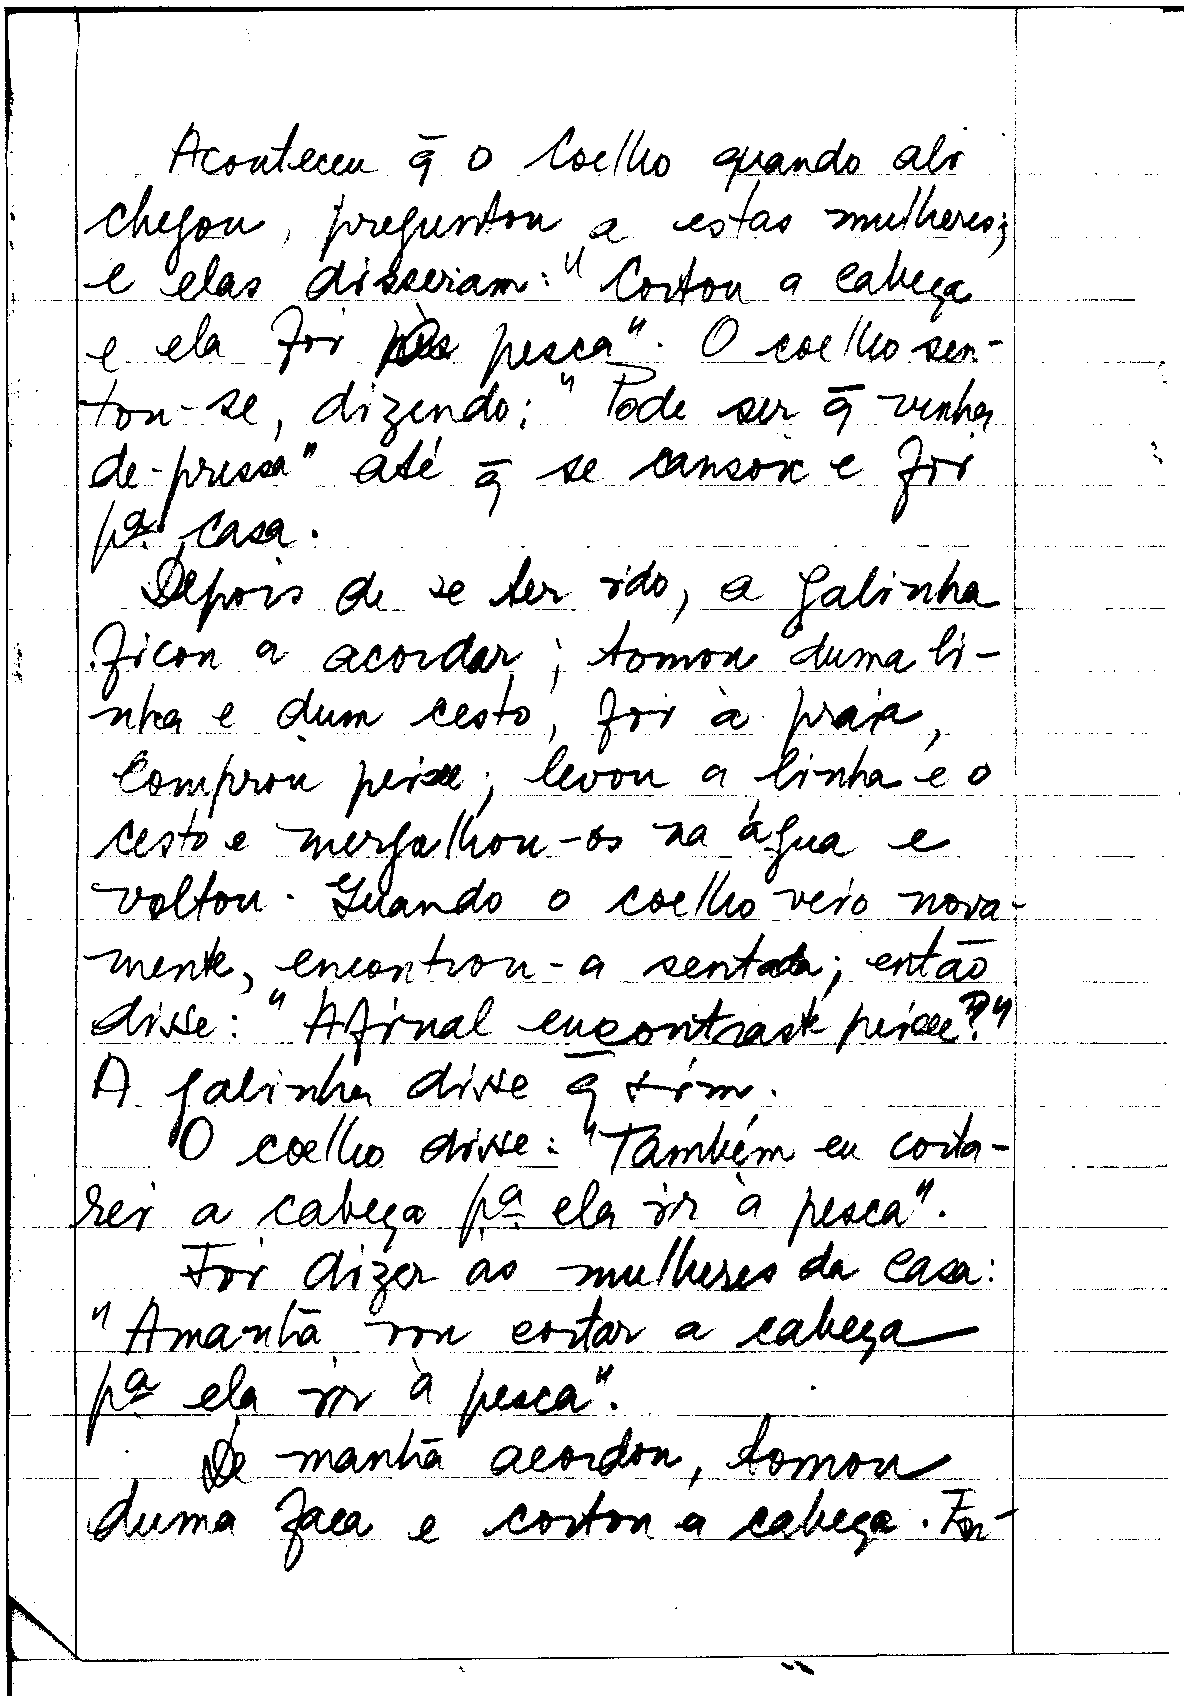 Aconteceu q̄ o Coelho quando ali
chegou, preguntou a estas mulheres;
e elas disseram: "Cortou a cabeça
e ela foi à pesca". O coelho sen-
tou-se, dizendo: "Pode ser q̄ venha
de-pressa" até q̄ se cansou e foi
pª casa.
Depois de se ter ido, a galinha
ficou a acordar; tomou duma li-
nha e dum cesto, foi à praia,
comprou peixe; levou a linha e o
cesto e mergulhou-os na água e
voltou. Quando o coelho veio nova-
mente, encontrou-a sentada; então
disse: "Afinal encontraste peixe?"
A galinha disse q̄ sim.
O coelho disse: "Também eu corta-
rei a cabeça pª ela ir à pesca".
Foi dizer as mulheres da casa:
"Amanhã vou cortar a cabeça
pª ela ir à pesca".
De manhã acordou, tomou
duma faca e cortou a cabeça. En-